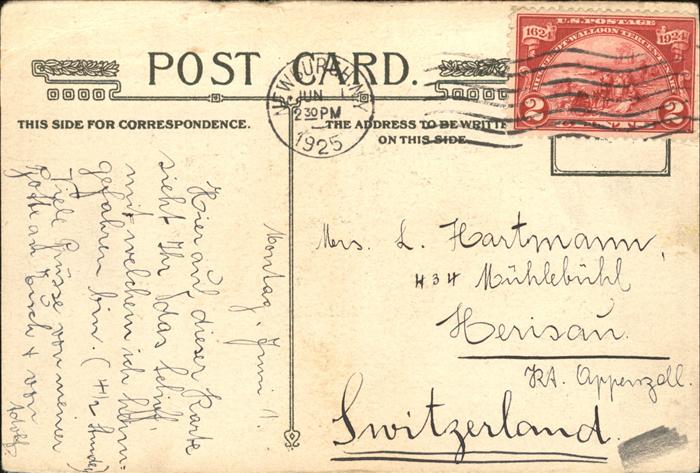 POST CARD.
U.S. POSTAGE
1624 1924
HUGUENOT-WALLOON TERCENTENARY
2 2
NEWBURGH, N.Y.
JUN 1
2 30 PM
1925
THIS SIDE FOR CORRESPONDENCE.
THE ADDRESS TO BE WRITTE
ON THIS SIDE
Montag, Juni 1.
Hier auf dieser Karte
sieht Ihr das Schiff
mit welchem ich heim-
gefahren bin. (4 1/2 Stunde)
Viele Grüsse von meiner
Gotte an Euch + von
Adolf
Mrs. L. Hartmann,
434 Mühlebühl
Herisau.
Kt. Appenzell.
Switzerland.